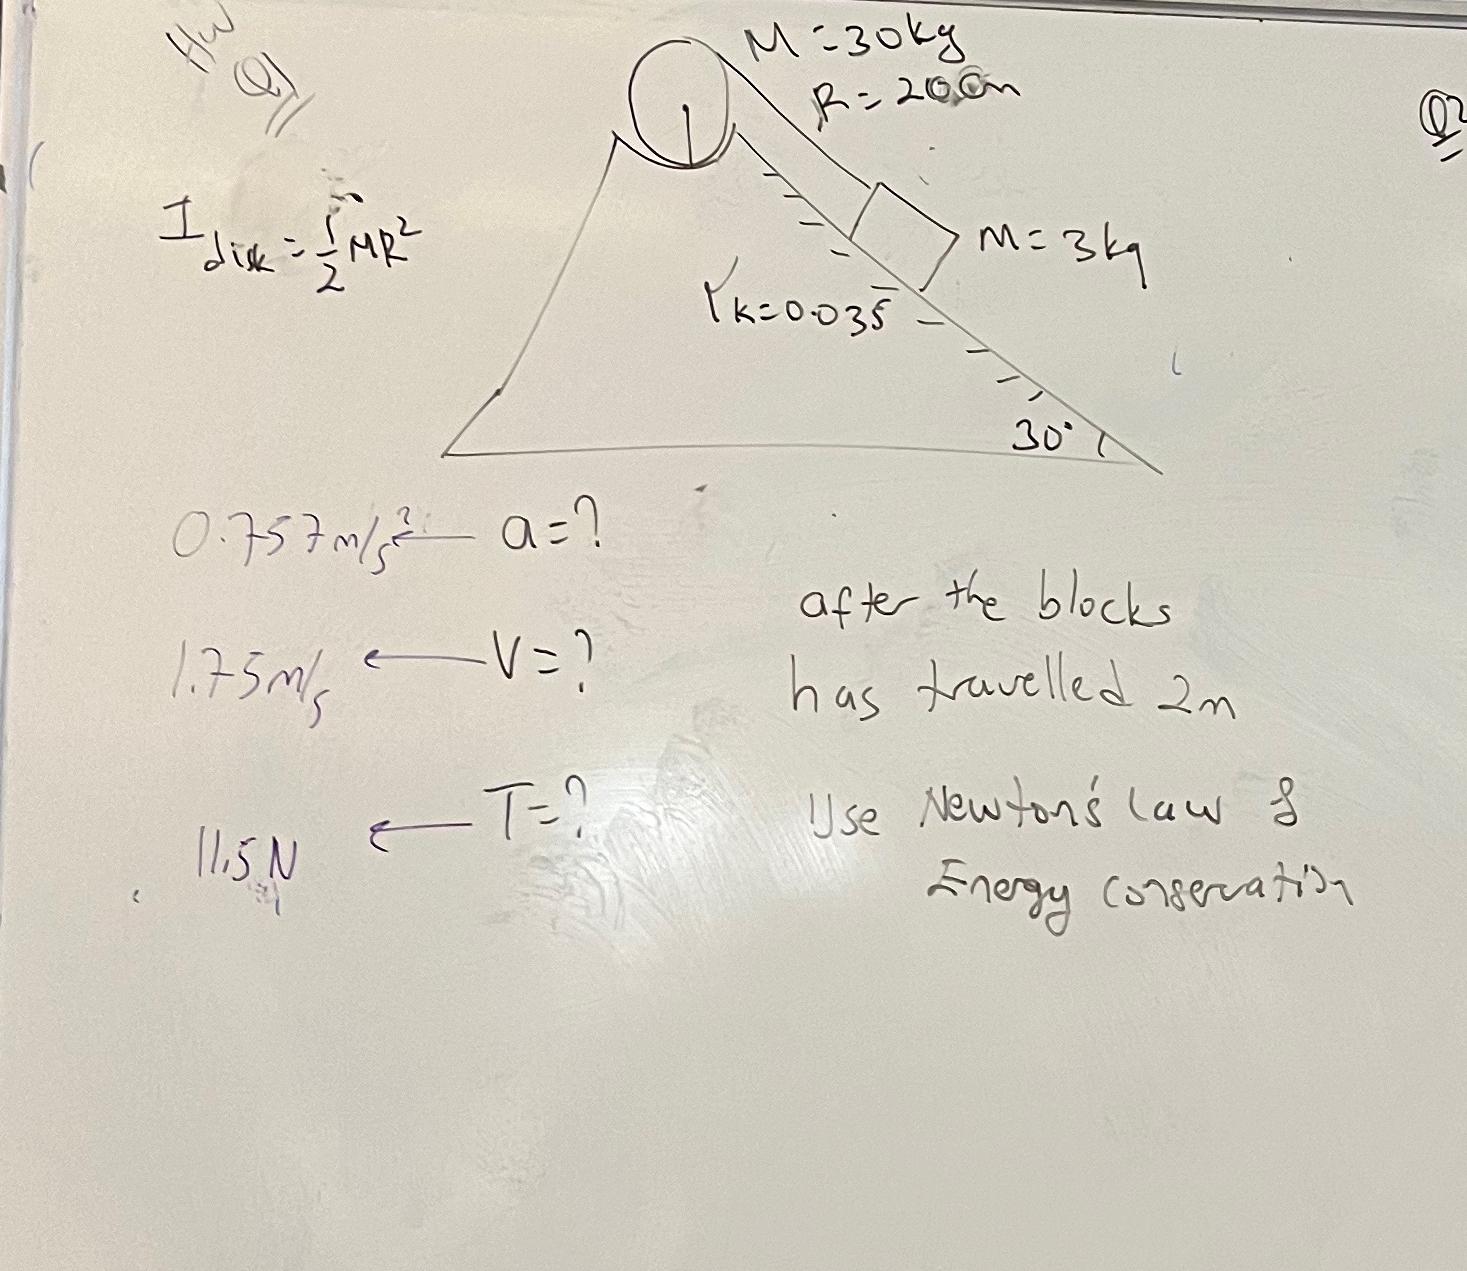 HW
Q1
M = 30kg
R = 20cm
Q2
I disk = 1/2 MR²
M = 3kg
μk = 0.035
30°
0.757 m/s² ← a = ?
after the blocks
1.75 m/s ← V = ?
has travelled 2m
11.5 N ← T = ?
Use Newton's law &
Energy conservation